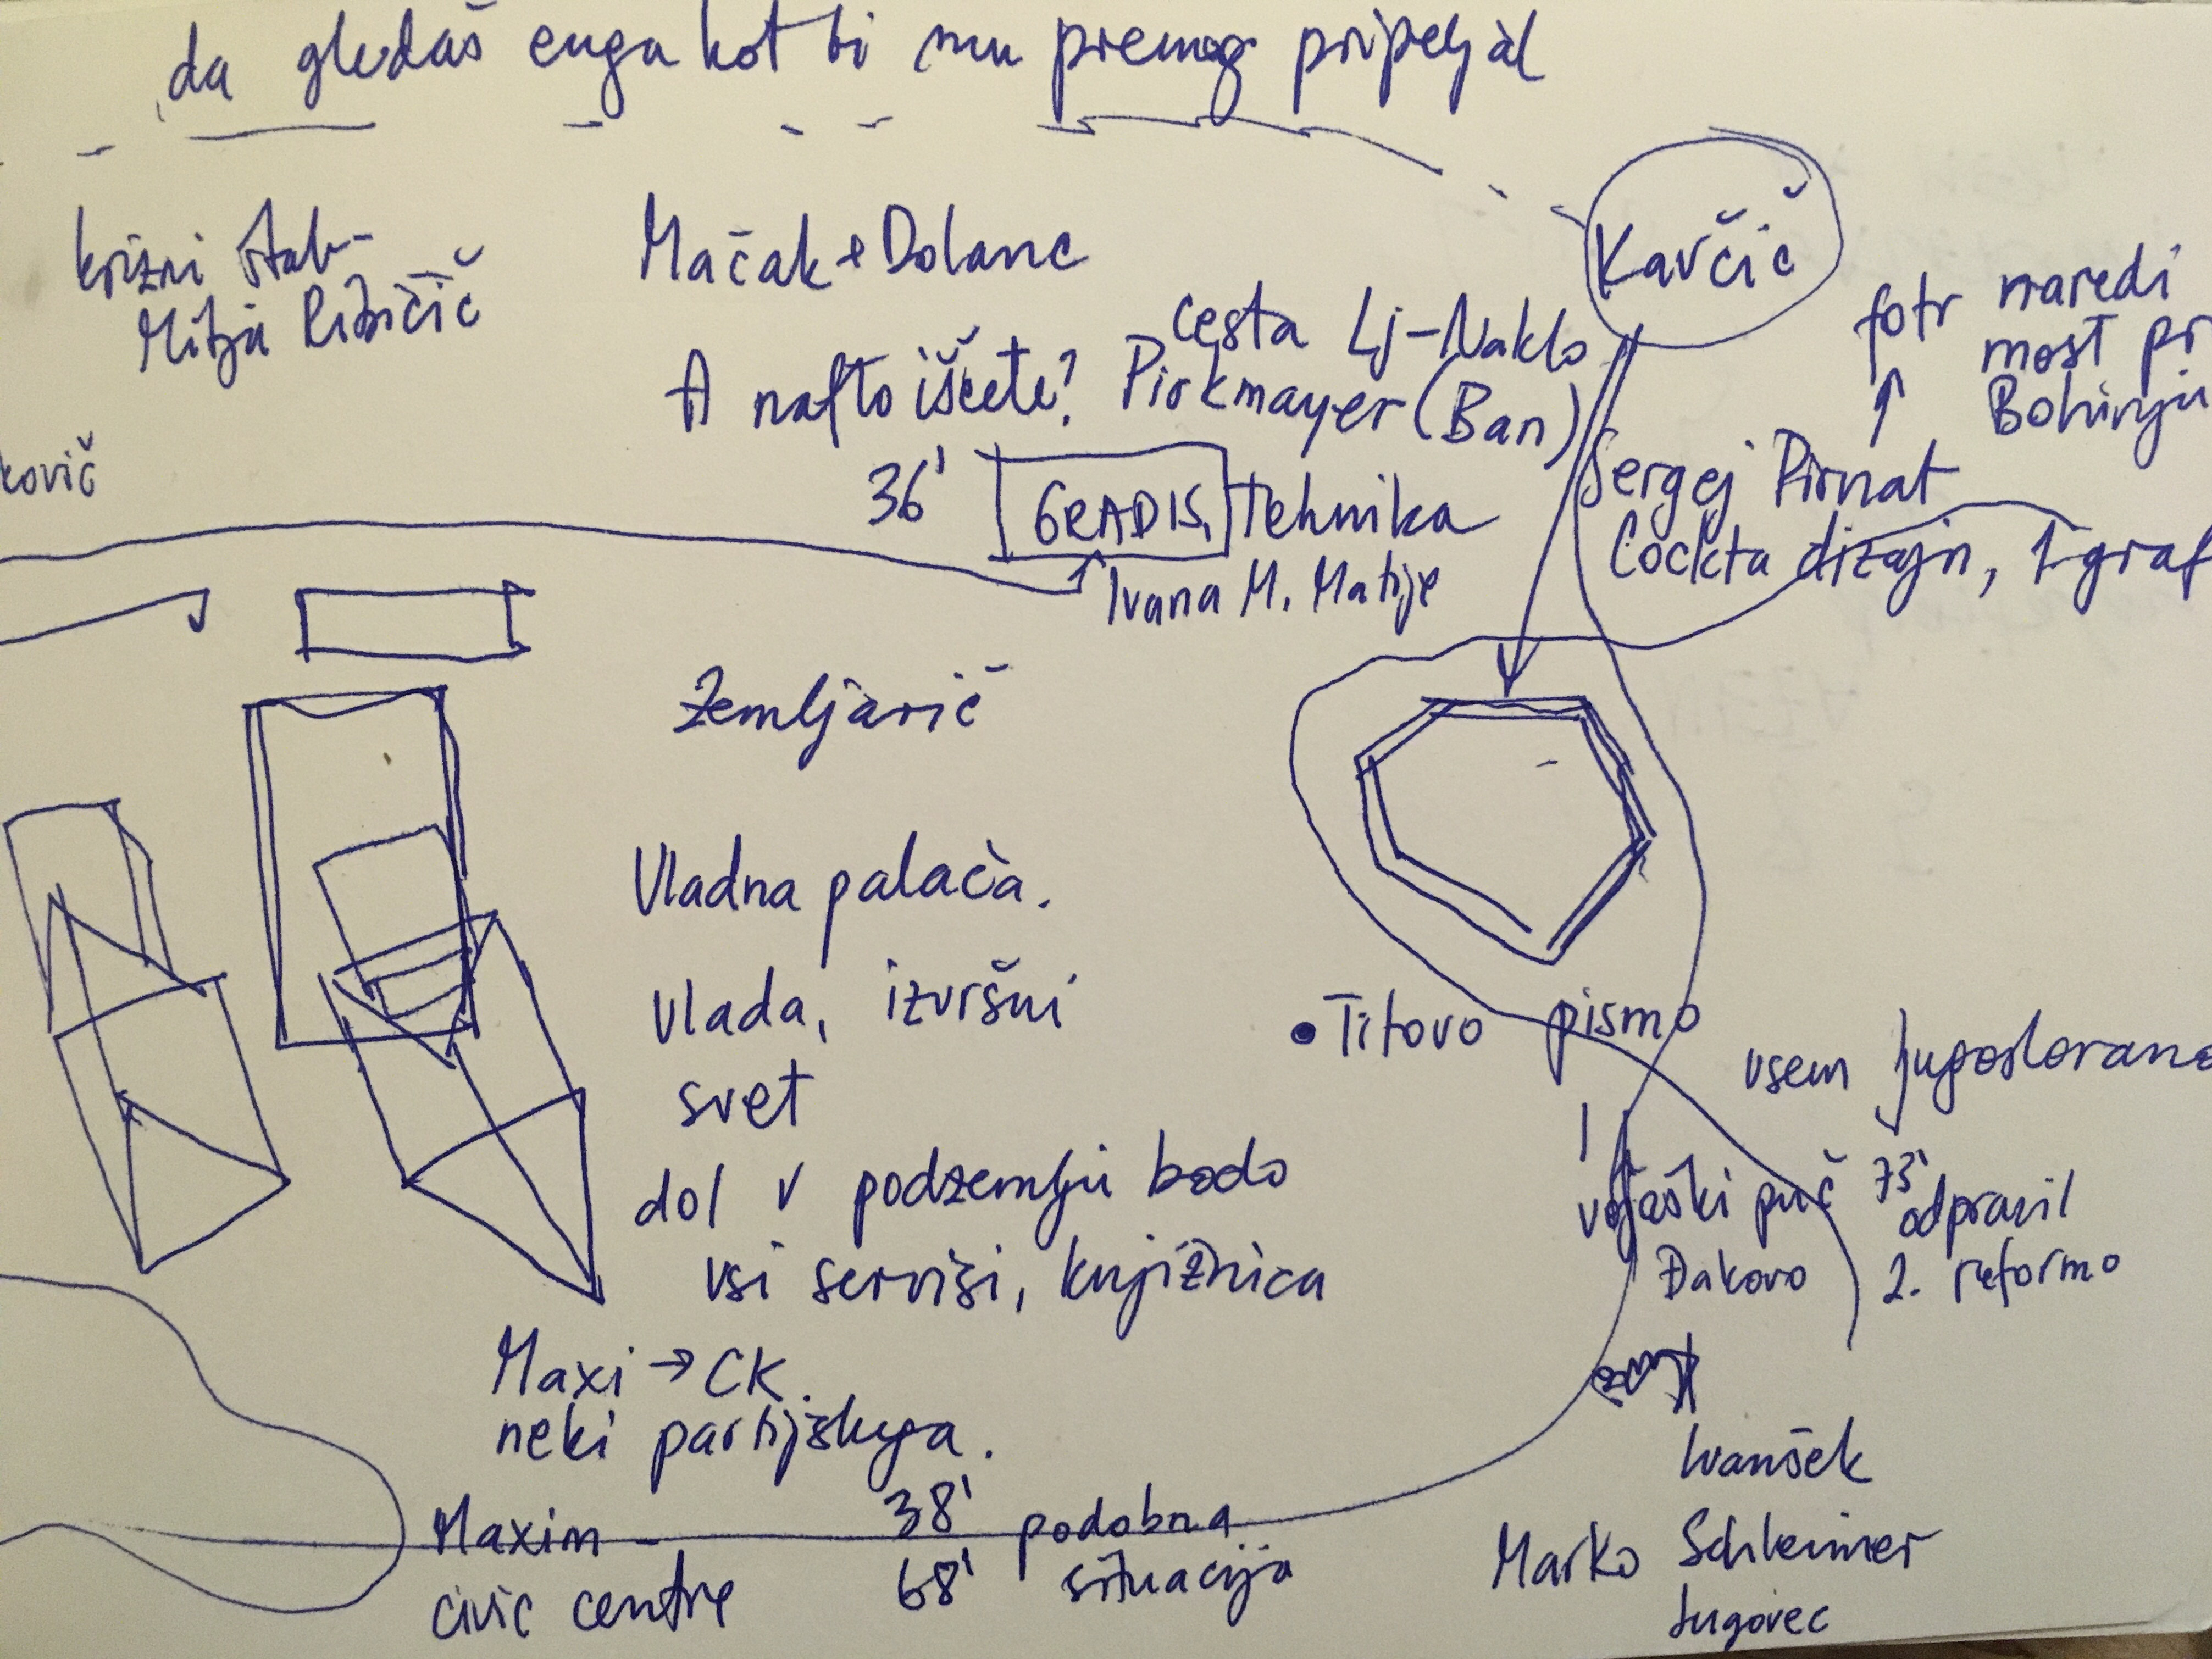 da gledaš enga kot bi mu premog pripeljal
krizni štab -
Mitja Ribičič
Mačak + Dolanc
Kavčič
cesta Lj-Naklo
A nafto iščete? Pirkmayer (Ban)
fotr naredi
most pr
Bohinju
ković
36' GRADIS, Tehnika
Ivana M. Matije
Sergej Pirnat
Cockta dizajn, 1 graf
Zemljarič
Vladna palača.
Vlada, izvršni
svet
dol v podzemlju bodo
vsi servisi, knjižnica
• Titovo pismo
vsem Jugoslovano
vojaški puč 73'
Đakovo
odpravil
2. reformo
Maxi → CK.
neki partijskega.
Maxim -
civic centre
38'
68'
podobna
situacija
Ivanšek
Marko Schleimer
Jugovec